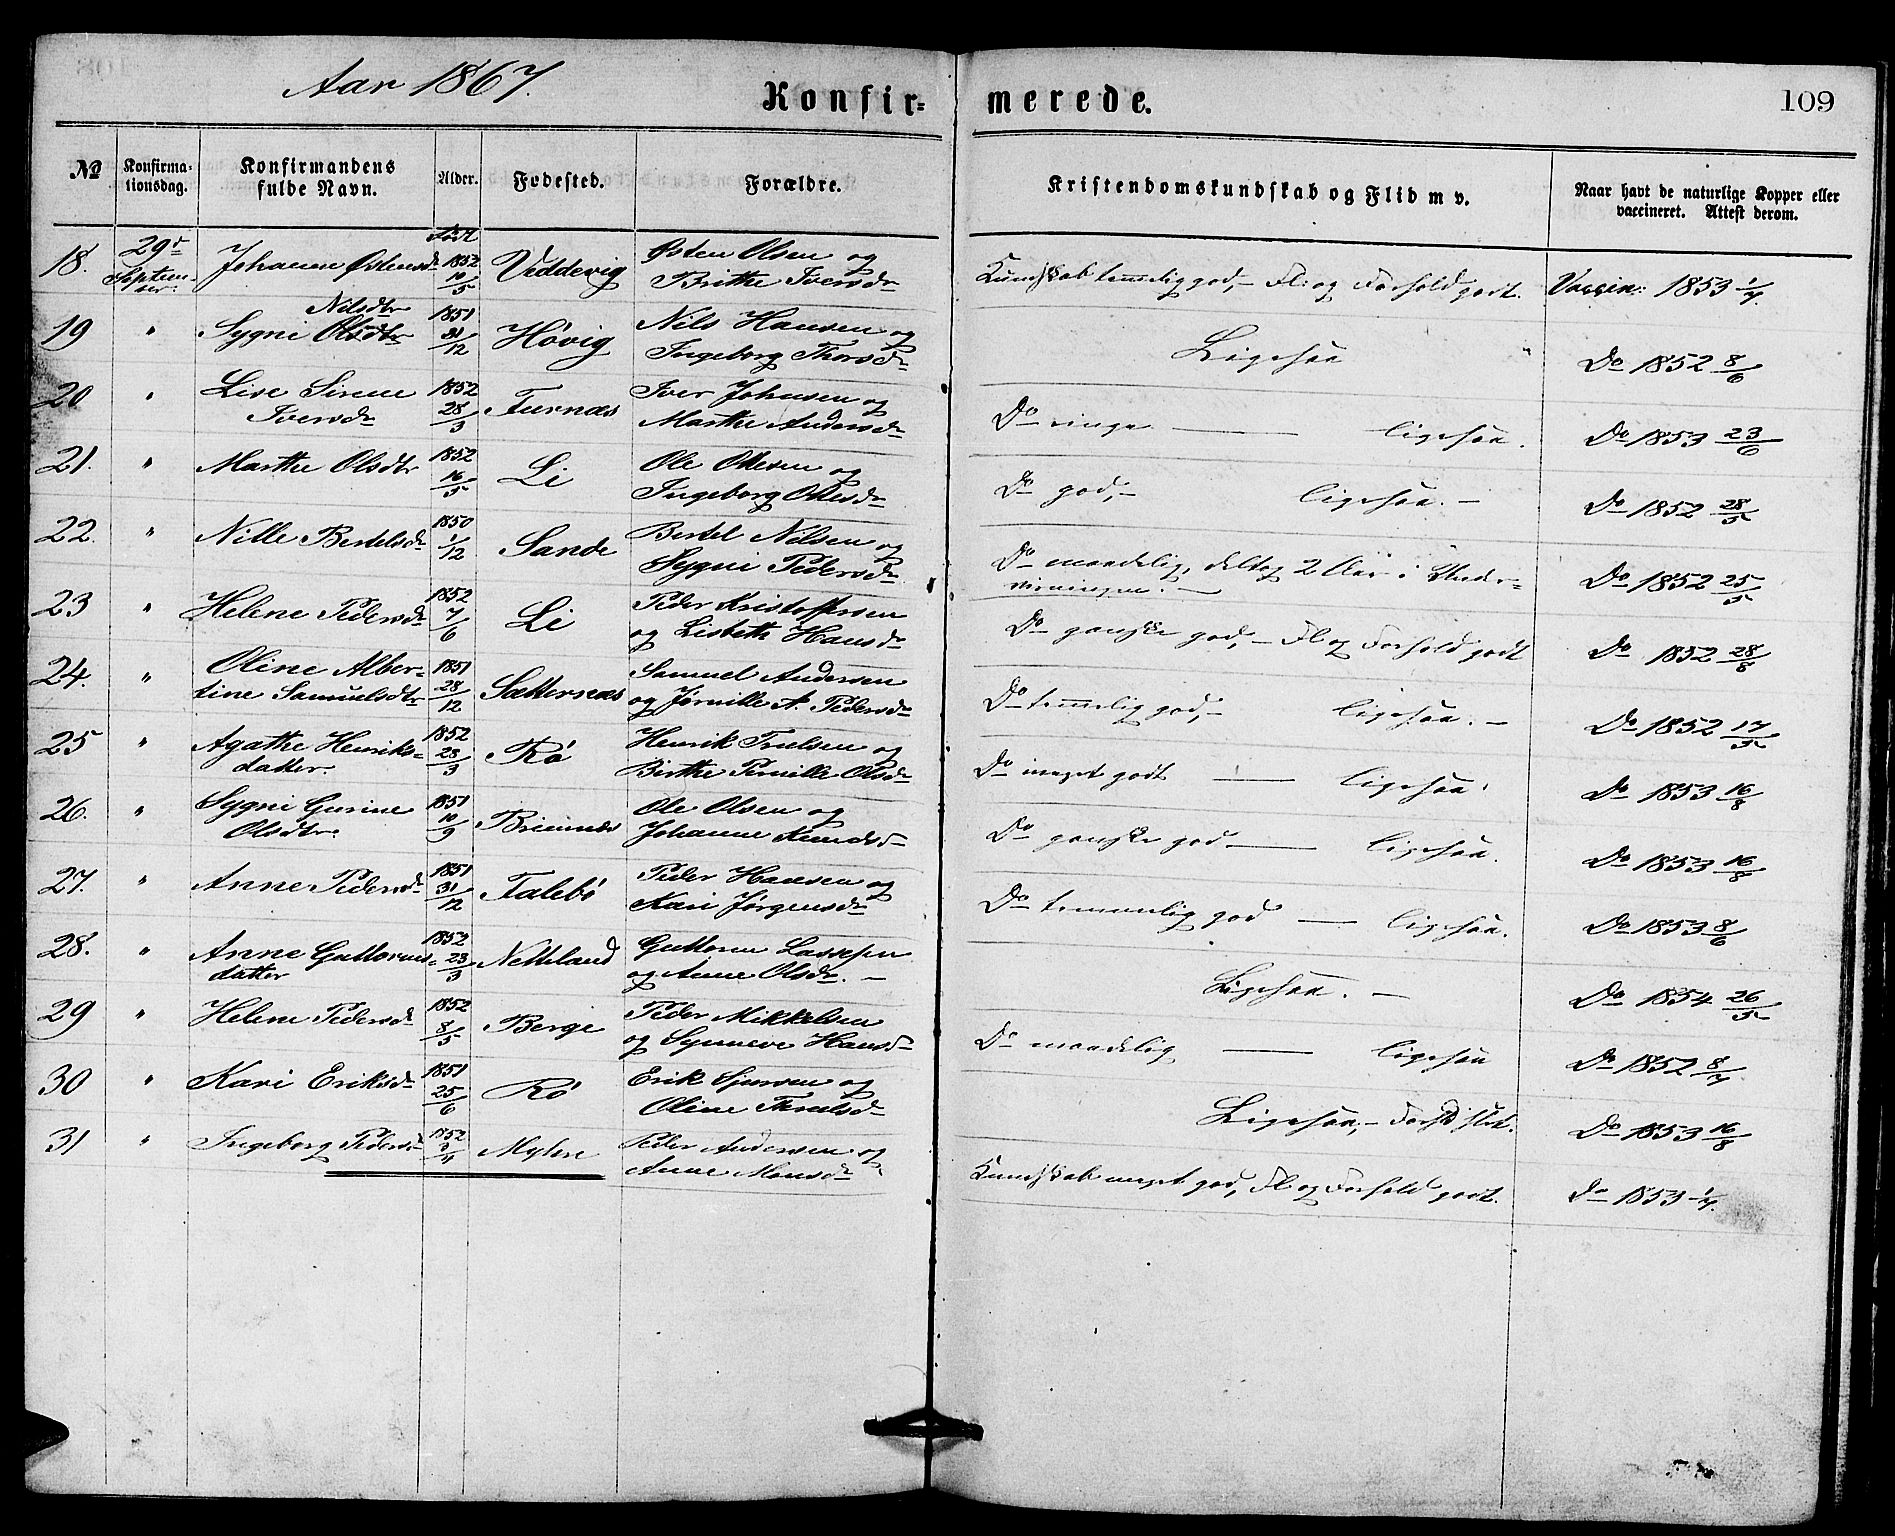 Aar 1867.
Konfir=
merede.
109
No
Konfirma-
tionsdag.
Konfirmandens
fulde Navn.
Alder.
Fødested.
Forældre.
Kristendomskundskab og Flid m v.
Naar havt de naturlige Kopper eller
vaccineret. Attest derom.
18. 29d Septem- ber. Johanne Østensdr Født 1852 10/5 Veddevig Østen Olsen og
Brithe Iversdr
Kundskab temmelig god, - Fl. og Forhold godt. Vaccin: 1853 1/7
19 " Sygni Olsdtr Nilsdtr 1851 31/12 Høvig Nils Hansen og
Ingeborg Thorsdr
Ligesaa " Do 1852 8/6
20 " Lise Sirene
Iversdr 1852 28/3 Furnæs Iver Johnsen og
Marthe Andersdr
Do ringe — ligesaa. Do 1853 23/6
21. " Marthe Olsdtr 1852 16/5 Li Ole Olesen og
Ingeborg Olesdr
Do god, - ligesaa. - Do 1852 28/5
22. " Nille Bertelsdr 1850 1/12 Sande Bertel Nilsen og
Sygni Pedersdr
Do maadelig, deltog 2 Aar i Under-
visningen. - Do 1852 25/5
23 " Helene Pedersdr 1852 7/6 Li Peder Kristoffersen
og Lisbeth Hansdr
Do ganske god, - Fl og Forhold godt Do 1852 28/8
24. " Oline Alber-
tine Samuelsdtr 1851 28/12 Sætternæs Samuel Andersen
og Jørnille A. Pedersdr
Do temmelig god, - ligesaa. - Do 1852 17/5
25 " Agathe Henriks-
datter. 1852 28/3 Rø Henrik Truelsen og
Birthe Pernille Olsdr
Do meget godt — ligesaa. Do 1853 16/8
26. " Sygni Gurine
Olsdtr. 1851 10/9 Brimnæs Ole Olsen og
Johanne Knudsd
Do ganske god — ligesaa. Do 1853 16/8
27. " Anne Pedersdr 1851 31/12 Falebø Peder Hansen og
Kari Jørgensdr
Do temmelig god — ligesaa. Do 1853 8/6
28. " Anne Guttorms-
datter 1852 23/3 Netteland Guttorm Lassesen
og Anne Olsdr. -
Ligesaa. - Do 1854 26/5
29 " Helene Pedersdr 1852 8/5 Berge Peder Mikkelsen
og Synneve Hansd
Do maadelig — ligesaa Do 1852 8/7
30 " Kari Eriksdr 1851 25/6 Rø Erik Sjursen og
Oline Thruelsdr
Ligesaa, - Forhd slet. Do 1853 16/8
31 " Ingeborg Pedersdr 1852 Myhre Peder Andersen og
Anne Monsdr
Kundskab meget god, Fl og Forhold godt. Do 1853 1/7.